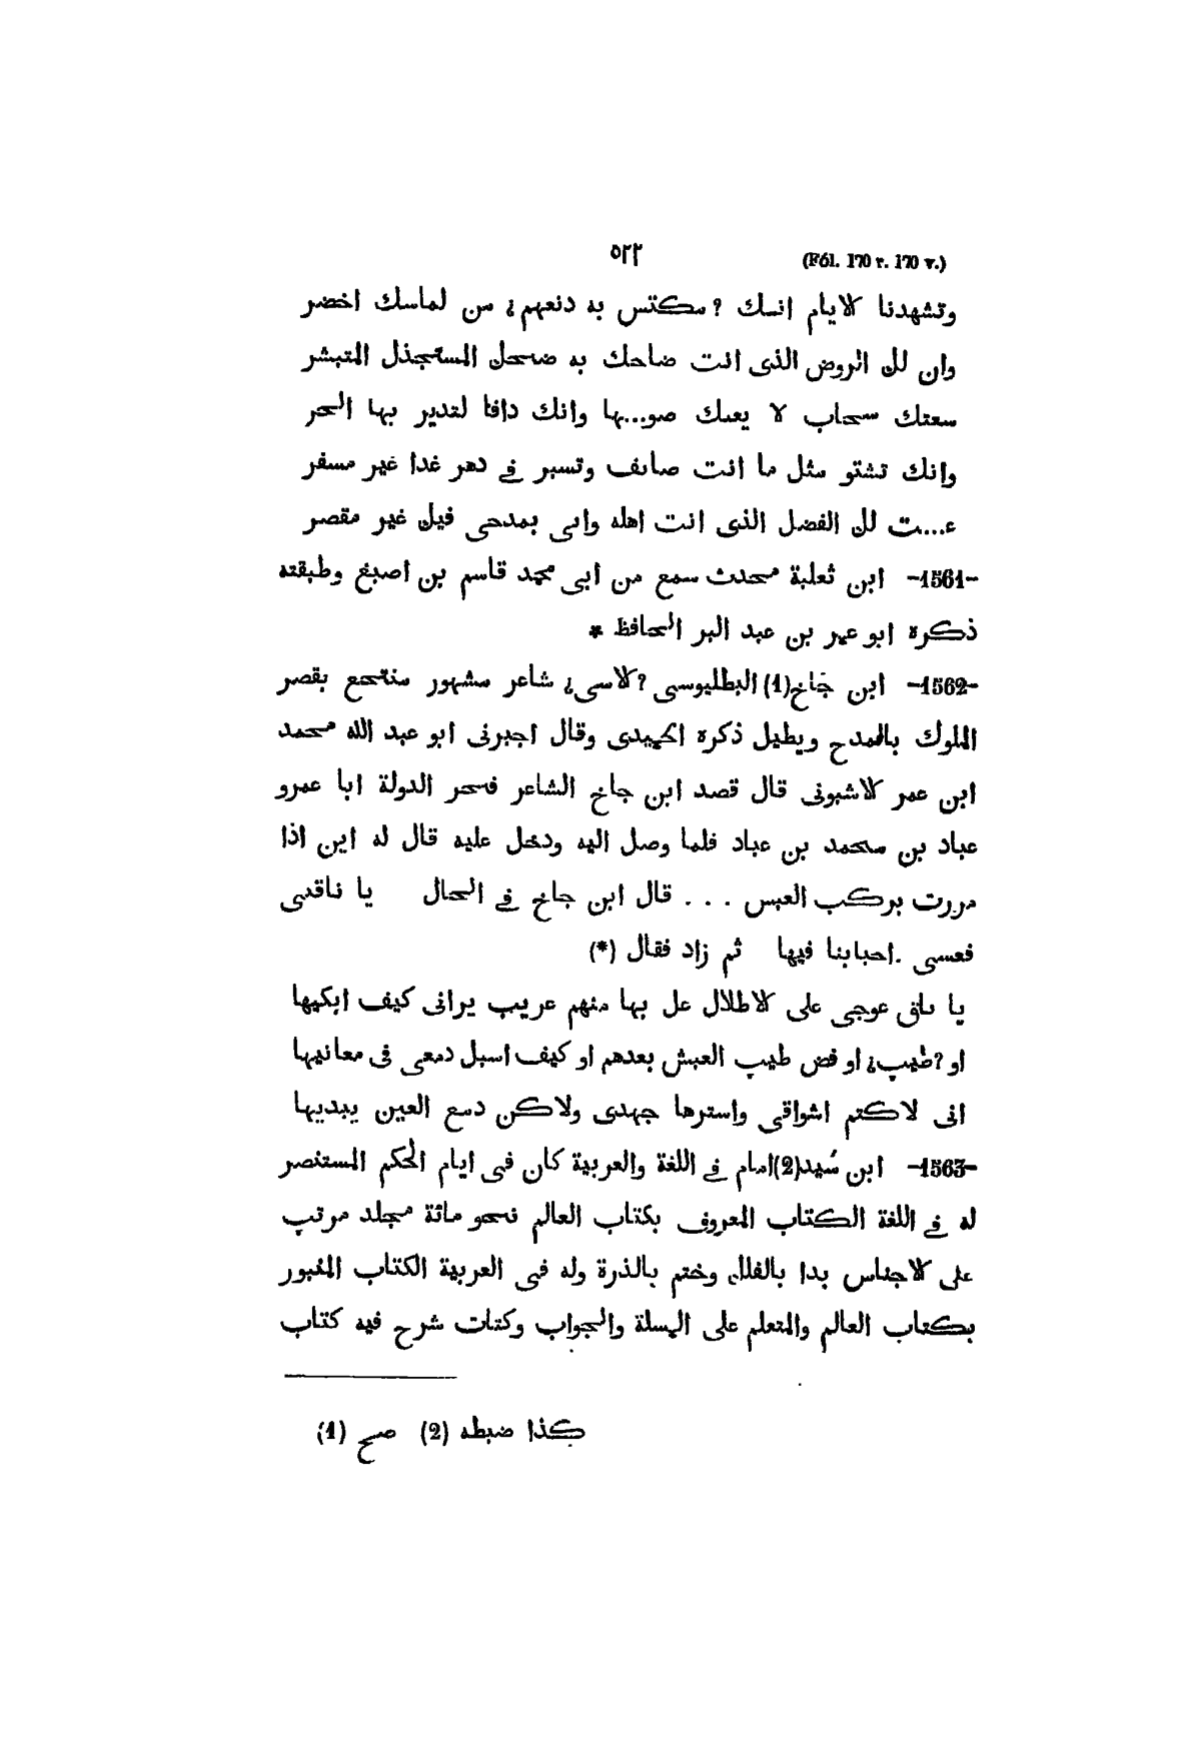 (Fól. 170 r. 170 v.) ٥٢٢
وتشهدنا الايام انسك ؟ مكتس به دنعهم؟ من لماسك اخضر
وان لك الروض الذى انت ضاحك به ضحل المستجذل المتبشر
سعتك سحاب لا يعىك صو...بها وانك دافا لتدير بها الحر
وانك تشتو مثل ما انت صائف وتسبر فى دهر غدا غير مسفر
ء...ت لك الفضل الذى انت اهله وانى بمدحى فيك غير مقصر
-1561- ابن ثعلبة محدث سمع من ابى محمد قاسم بن اصبغ وطبقته
ذكره ابو عمر بن عبد البر الحافظ *
-1562- ابن جَاخ(1) البطليوسى ؟الاسى؟ شاعر مشهور منتجع بقصر
الملوك بالمدح ويطيل ذكره الحميدى وقال اجبرنى ابو عبد الله محمد
ابن عمر الاشبونى قال قصد ابن جاخ الشاعر فخر الدولة ابا عمرو
عباد بن محمد بن عباد فلما وصل اليه ودخل عليه قال له اين اذا
مررت بركب العيس . . . قال ابن جاخ فى الحال يا ناقتى
فعسى .احبابنا فيها ثم زاد فقال (*)
يا ناق عوجى على الاطلال عل بها منهم عريب يرانى كيف ابكيها
او ؟طيب؟ او فض طيب العيش بعدهم او كيف اسبل دمعى فى معانيها
انى لاكتم اشواقى واسترها جهدى ولاكن دمع العين يبديها
-1563- ابن سُيد(2) امام فى اللغة والعربية كان فى ايام الحكم المستنصر
له فى اللغة الكتاب المعروف بكتاب العالم نحو مائة مجلد مرتب
على الاجناس بدا بالفلك وختم بالذرة وله فى العربية الكتاب المخبور
بكتاب العالم والمتعلم على المسلة والجواب وكتاب شرح فيه كتاب
(1) صح (2) كذا ضبطه